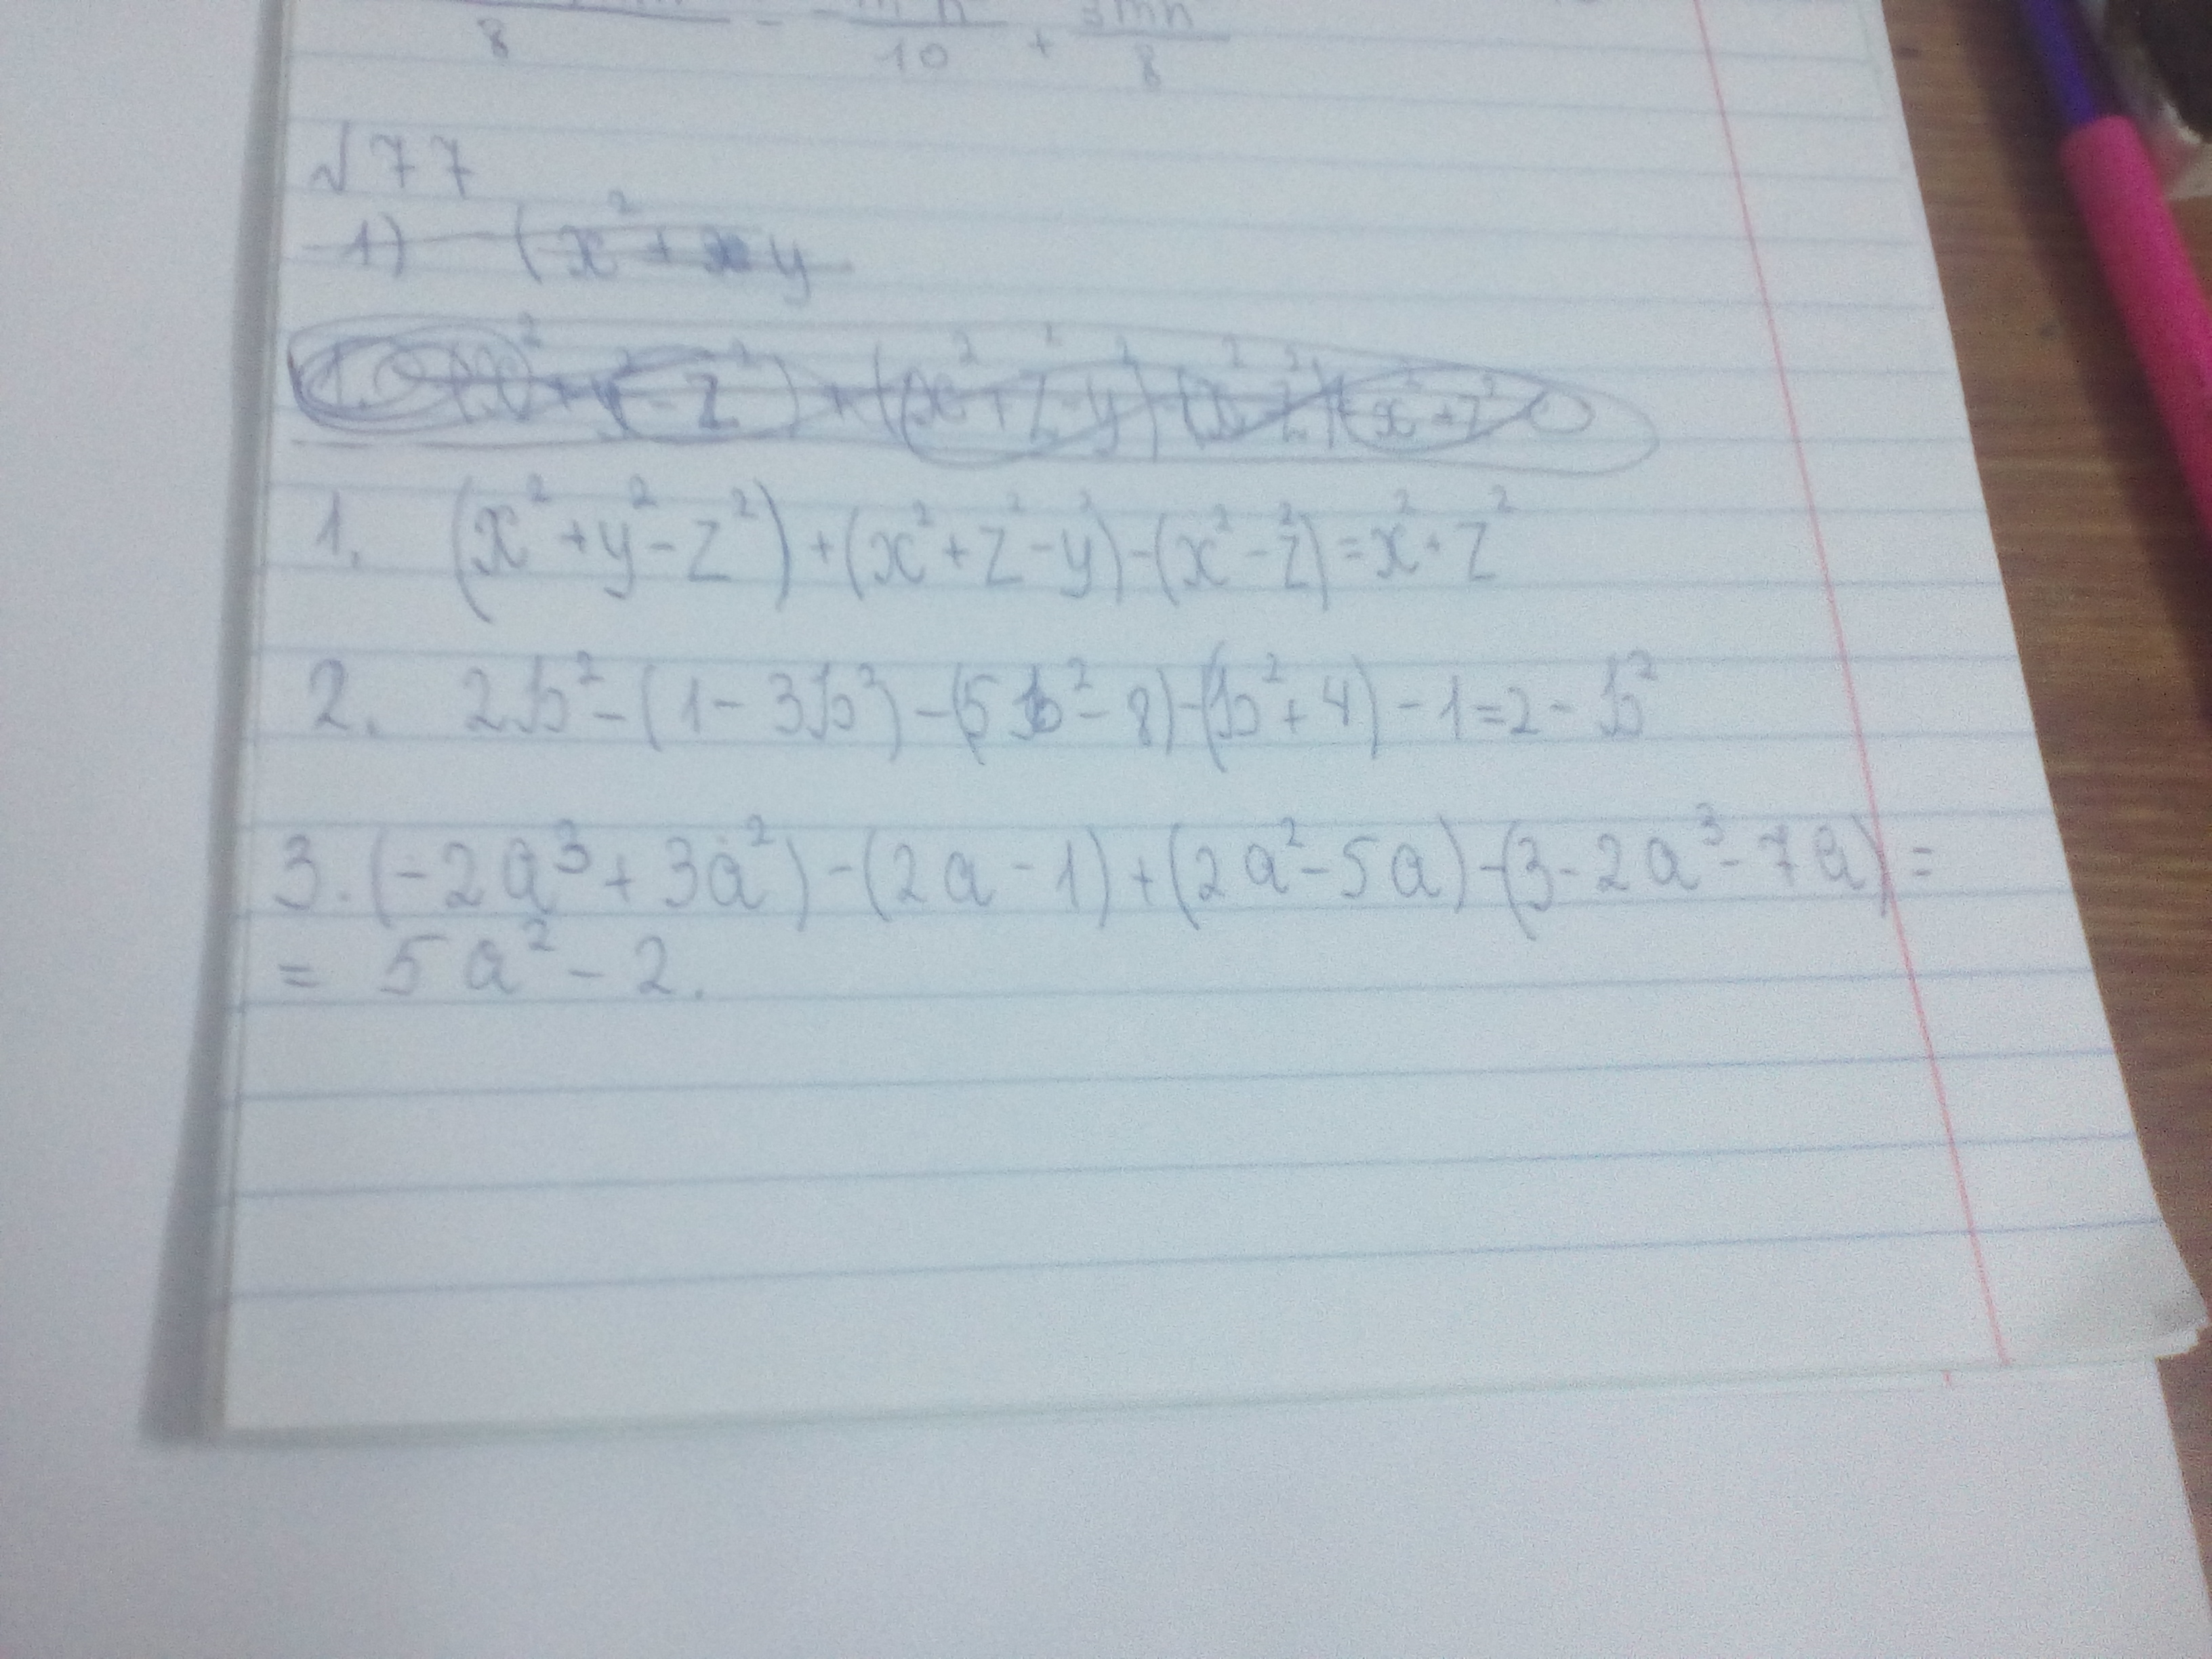 8 - 10 + 3mn/8
√77
1) (x² + y
1. (x² + y² - z²) + (x² + z² - y²) - (x² - z²) = x² + z²
2. 2b² - (1 - 3b²) - (5b² - 8) - (b² + 4) - 1 = 2 - b²
3. (-2a³ + 3a²) - (2a - 1) + (2a² - 5a) - (3 - 2a³ - 7a) =
= 5a² - 2.